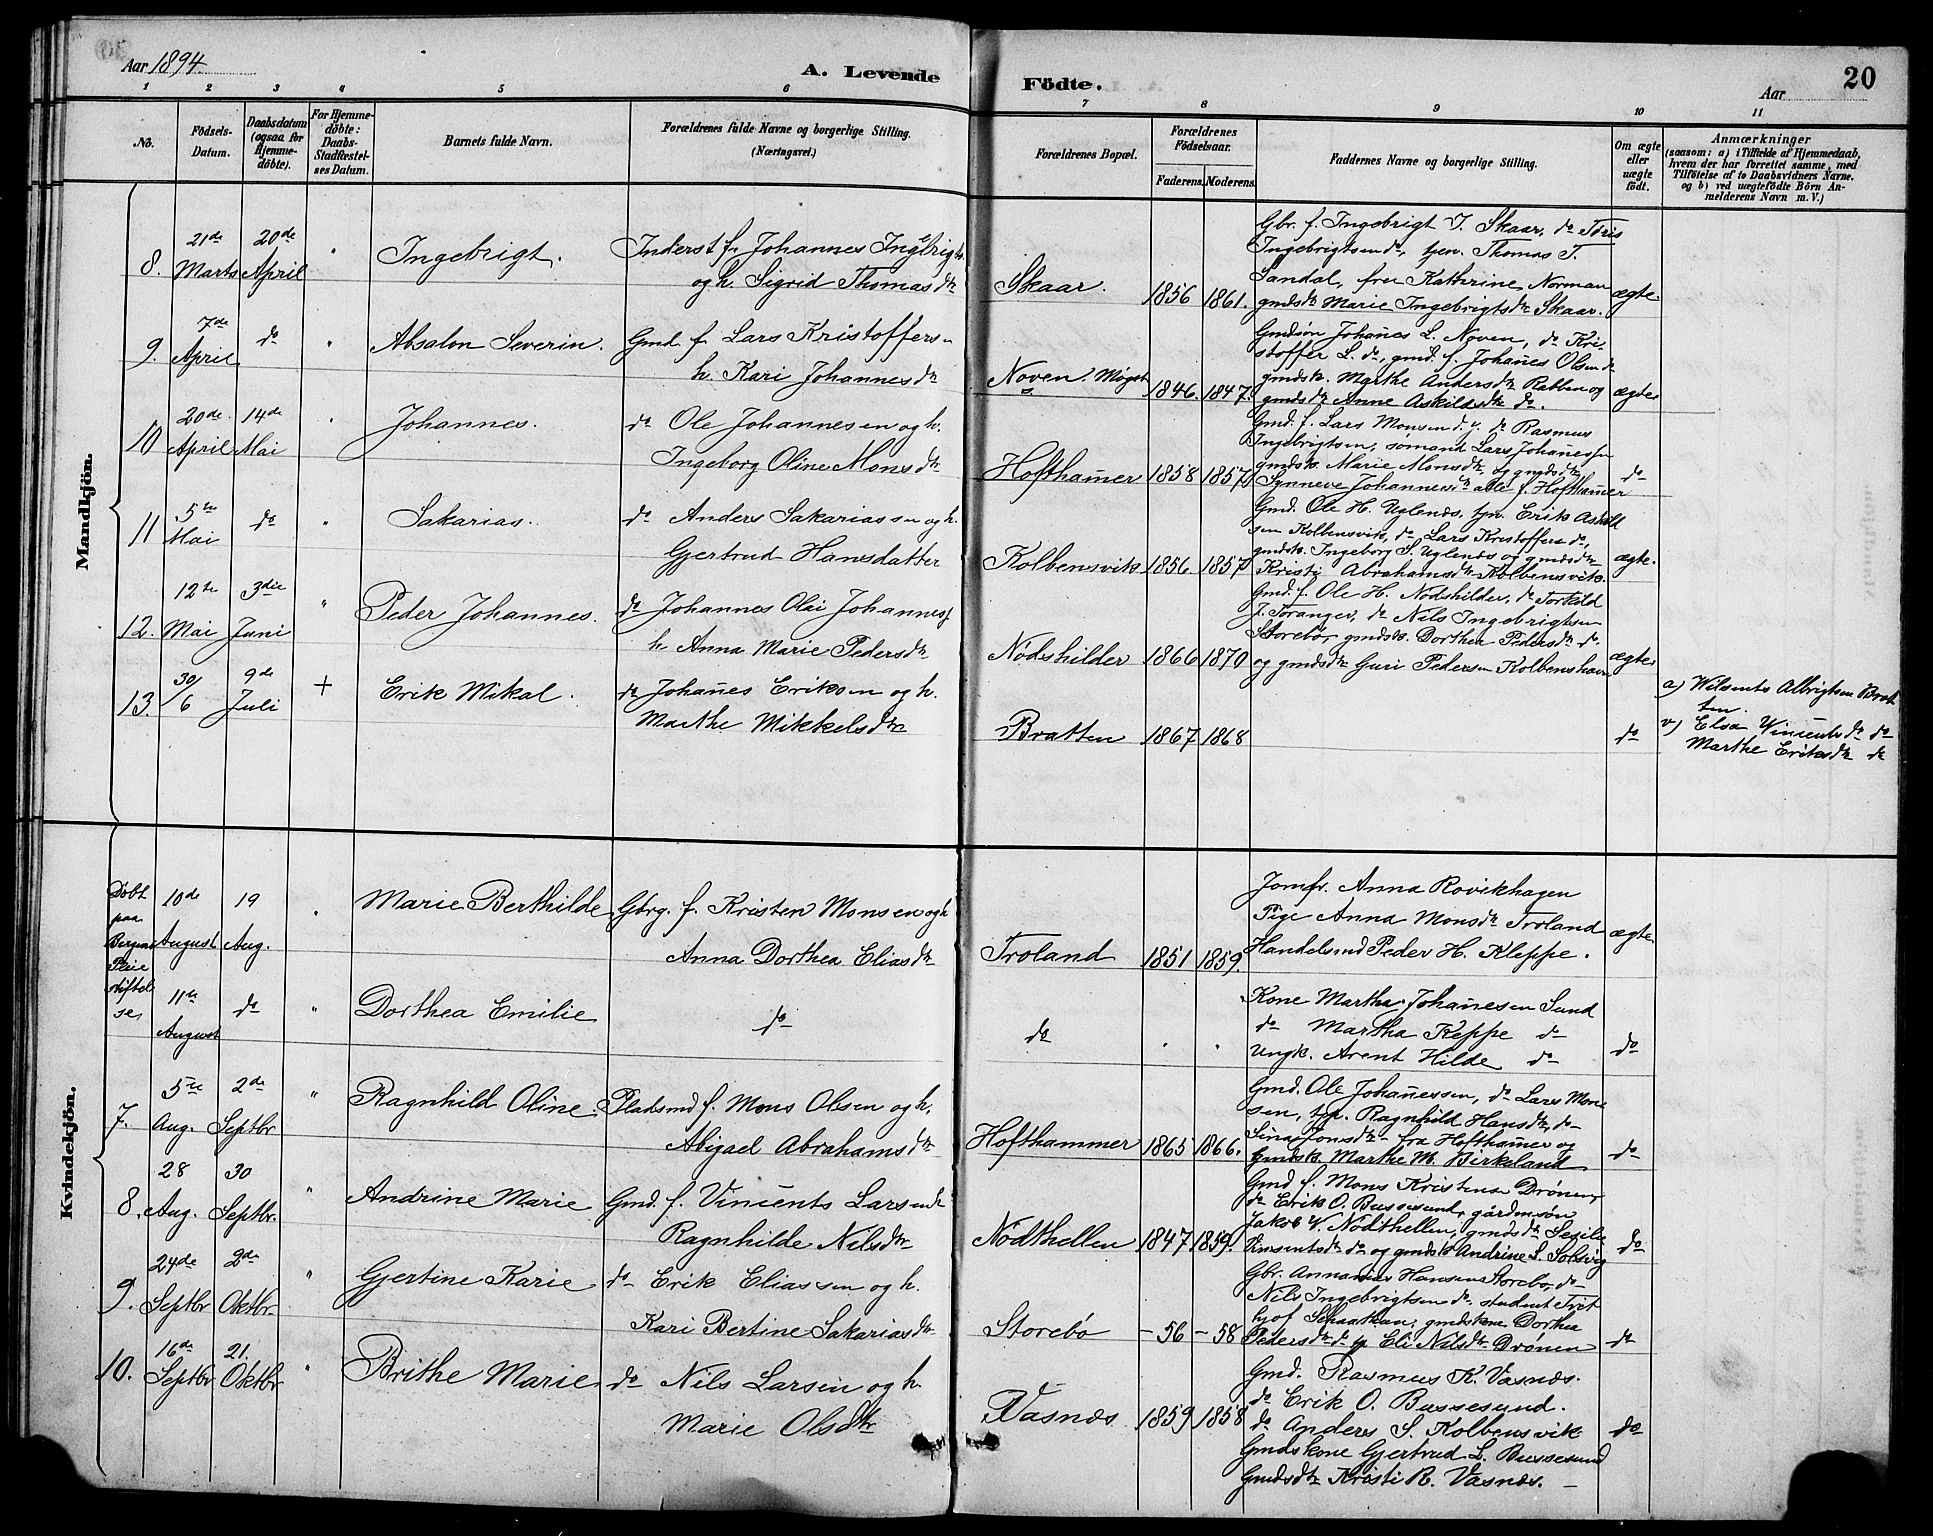 Aar 1894.
A. Levende Födte.
Aar
20
1 2 3 4 5 6 7 8 9 10 11
No.
Födsels-Datum.
Daabsdatum (ogsaa for Hjemme-döbte).
For Hjemme-döbte: Daabs-Stadfæstel-ses Datum.
Barnets fulde Navn.
Forældrenes fulde Navne og borgerlige Stilling. (Næringsvei.)
Forældrenes Bopæl.
Forældrenes Födselsaar.
Faderens. Moderens.
Faddernes Navne og borgerlige Stilling.
Om ægte eller uægte födt.
Anmærkninger
(saasom: a) i Tilfælde af Hjemmedaab,
hvem der har forrettet samme, med
Tilföielse af to Daabsvidners Navne,
og b) ved uægtefödte Börn An-
melderens Navn m. V.)
Mandkjön.
8. 21de Marts 20de April " Ingebrigt.
Inderst f. Johannes Ingebrigts.
og h. Sigrid Thomasdtr
Skaar. 1856 1861.
Gbr. f. Ingebrigt J. Skaar, do Töris
Ingebrigtsen do, tjen. Thomas T.
Sandal, frøk Kathrine Norman
gmdsdtr Marie Ingebrigtsdtr Skaar.
ægte.
9. 7de April do " Absalon Severin.
Gmd. f. Lars Kristoffersn
h. Kari Johannesdtr
Noven. Møgst 1846. 1847
Gmdsøn Johañes L. Noven, do Kri-
stoffer L. do, gmd. f. Johañes Olsen do
gmdsk. Marthe Andersdtr Rabben og
gmdsdtr Anne Askildsdtr do.
ægte
10 20de April 14de Mai " Johannes.
do Ole Johannesen og h.
Ingeborg Oline Monsdtr
Hoftham̃er 1858 1857
Gmd. f. Lars Monsen d. y. do Rasmus
Ingebrigtsen, sømand Lars Johanessen
gmdsk. Marie Monsdtr, og gmdsdtr
Synneve Johannesdtr alle f. Hoftham̃er
do
11 5te Mai do " Sakarias.
do Anders Sakariassen og h.
Gjertrud Hansdatter
Kolbensvik 1856 1857
Gmd. Ole H. Uglenes, tjn. Erik Askild
sen Kolbensvik, do Lars Kristoffers do,
gmdsk. Ingeborg S. Uglenes og gmdsdtr
Kristi Abrahamsdtr Kolbensvik.
ægte.
12. 12te Mai 3die Juni " Peder Johannes.
do Johannes Olai Johanness.
h. Anna Marie Pedersdtr
Nødshilder 1866 1870
Gmd. f. Ole H. Nødshilder, do Torkild
J. Toranger, do Nils Ingebrigtsen
Storebø, gmdsk. Dorthea Pedersdtr do
og gmdsdtr Guri Pedersen Kolbenshavn
ægte
13. 30/6 9de Juli + Erik Mikal.
do Johañes Eriksen og h.
Marthe Mikkelsdtr
Bratten 1867 1868
do
a) Wilsents Albrigtsen Brat
ten.
v) Elsa Wincentsdtr do
Marthe Eriksdtr do
Kvindekjön.
Döbt paa Bergens Pleie stiftelse,
10de August 19 Aug. " Marie Berthilde
Gbrg. f. Kristen Monsen og h
Anna Dorthea Eliasdtr
Troland 1851 1859.
Jomfr. Anna Rovikhagen
Pige Anna Monsdtr Troland
Handelsmd Peder H. Kleppe.
ægte
11te August do " Dorthea Emilie
do
do " "
Kone Martha Johañesen Sund
do Martha Keppe do
Ungk. Arent Hilde do
do
7. 5te Aug. 2de Septbr " Ragnhild Oline.
Pladsmd f. Mons Olsen og h.
Abigael Abrahamsdtr
Hofthammer 1865 1866.
Gmd. Ole Johañessen, do Lars Mon
sen, tjp. Ragnhild Hansdtr, do
Sina Jonsdtr fra Hoftham̃er og
gmdsk. Marthe M. Birkeland
do
8. 28 Aug. 30 Septbr. " Andrine Marie
Gmd. f. Vincents Larsen h
Ragnhilde Nilsdtr
Nødthellen 1847 1859.
Gmd f. Mons Kristensen Drönen,
do Erik O. Bussesund, gårdmsøn
Jakob V. Nødthellen, gmdsdtr Sesilie
Vinsentsdtr do og gmdsk Andrine L. Solsvig
do
9. 24de Septbr 2de Oktbr. " Gjertine Karie
do Erik Eliassen og h.
Kari Bertine Sakariasdtr
Storebø – 56 – 58
Gbr. Annanias Hansen Storebø, do
Nils Ingebrigtsen do, student Frit
hjof Schaathun, gmdskone Dorthea
Pedersdtr do tp Eli Nilsdtr Drönen
do
10. 16de Septbr 21. Oktbr " Brithe Marie
do Nils Larsen og h.
Marie Olsdtr
Vasnæs 1859 1858
Gmd. Rasmus K. Vasnæs.
do Erik O. Bussesund.
do Anders S. Kolbensvik
Gmdskone Gjertrud L. Bussesund
Gmdsdtr Kristi R. Vasnæs.
do